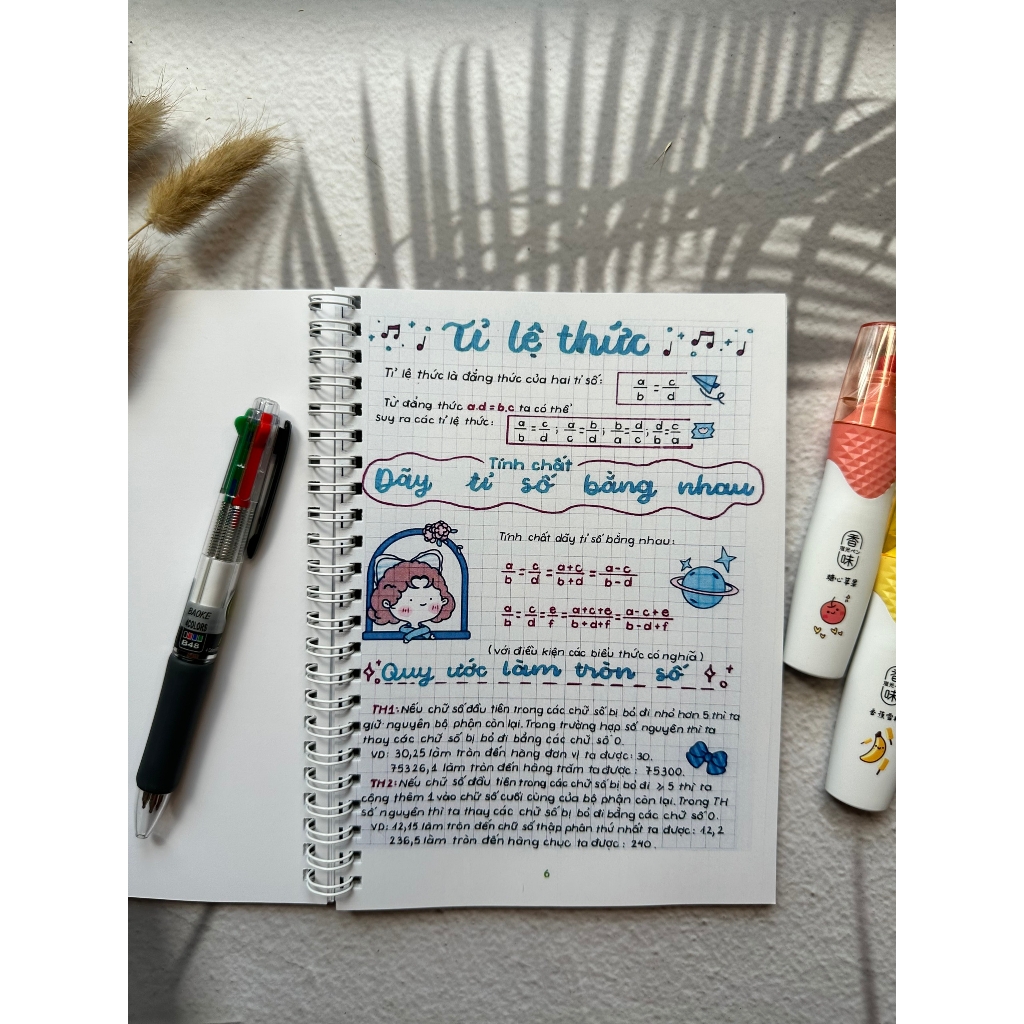 Tỉ lệ thức
Tỉ lệ thức là đẳng thức của hai tỉ số: a/b = c/d
Từ đẳng thức a.d = b.c ta có thể
suy ra các tỉ lệ thức: a/b = c/d ; a/c = b/d ; b/a = d/c ; d/b = c/a
Tính chất
Dãy tỉ số bằng nhau
Tính chất dãy tỉ số bằng nhau:
a/b = c/d = a+c/b+d = a-c/b-d
a/b = c/d = e/f = a+c+e/b+d+f = a-c+e/b-d+f
(với điều kiện các biểu thức có nghĩa)
Quy ước làm tròn số
TH1: Nếu chữ số đầu tiên trong các chữ số bị bỏ đi nhỏ hơn 5 thì ta
giữ nguyên bộ phận còn lại. Trong trường hợp số nguyên thì ta
thay các chữ số bị bỏ đi bằng các chữ số 0.
VD: 30,25 làm tròn đến hàng đơn vị ta được: 30.
75326,1 làm tròn đến hàng trăm ta được: 75300.
TH2: Nếu chữ số đầu tiên trong các chữ số bị bỏ đi ≥ 5 thì ta
cộng thêm 1 vào chữ số cuối cùng của bộ phận còn lại. Trong TH
số nguyên thì ta thay các chữ số bị bỏ đi bằng các chữ số 0.
VD: 12,15 làm tròn đến chữ số thập phân thứ nhất ta được: 12,2
236,5 làm tròn đến hàng chục ta được: 240.
6
BAOKE
4COLORS
B48
香
味
香
味